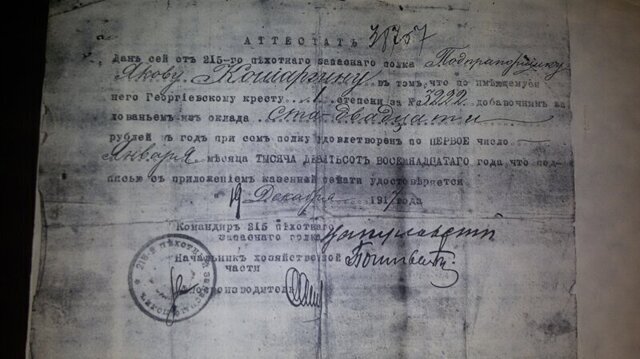 АТТЕСТАТЪ 38757
Данъ сей отъ 215-го пѣхотнаго запаснаго полка Подпрапорщику
Якову Кошаргину въ томъ, что по имѣющемуся
него Георгіевскому кресту 1 степени за № 3222 добавочнымъ жа
лованьемъ изъ оклада ста двадцати
рублей въ годъ при семъ полку удовлетворенъ по ПЕРВОЕ число
Января мѣсяца ТЫСЯЧА ДЕВЯТЬСОТЪ ВОСЕМНАДЦАТАГО года, что под-
писью съ приложеніемъ казенной печати удостовѣряется
19 Декабря 1917 года
Командиръ 215 пѣхотнаго
запаснаго полка
Начальникъ хозяйственной
части
Дѣлопроизводитель